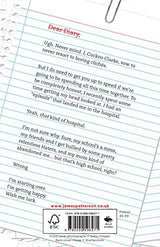 Dear Diary,
Ugh. Never mind. I, Cuckoo Clarke, vow to
never resort to boring clichés.
But I do need to get you up to speed if we're
going to be spending all this time together. To
be completely honest, I recently spent some
time getting my head looked at. I had an
"episode" that landed me in the hospital.
Yeah, that kind of hospital
I'm not sure why. Sure, my school's a mess,
my friends and I get bullied by some pretty
relentless haters, and my mom kind of
abandoned me... but that's high school, right?
Wrong
I'm starting over.
I'm getting happy.
Wish me luck.
www.jamespatterson.co.uk